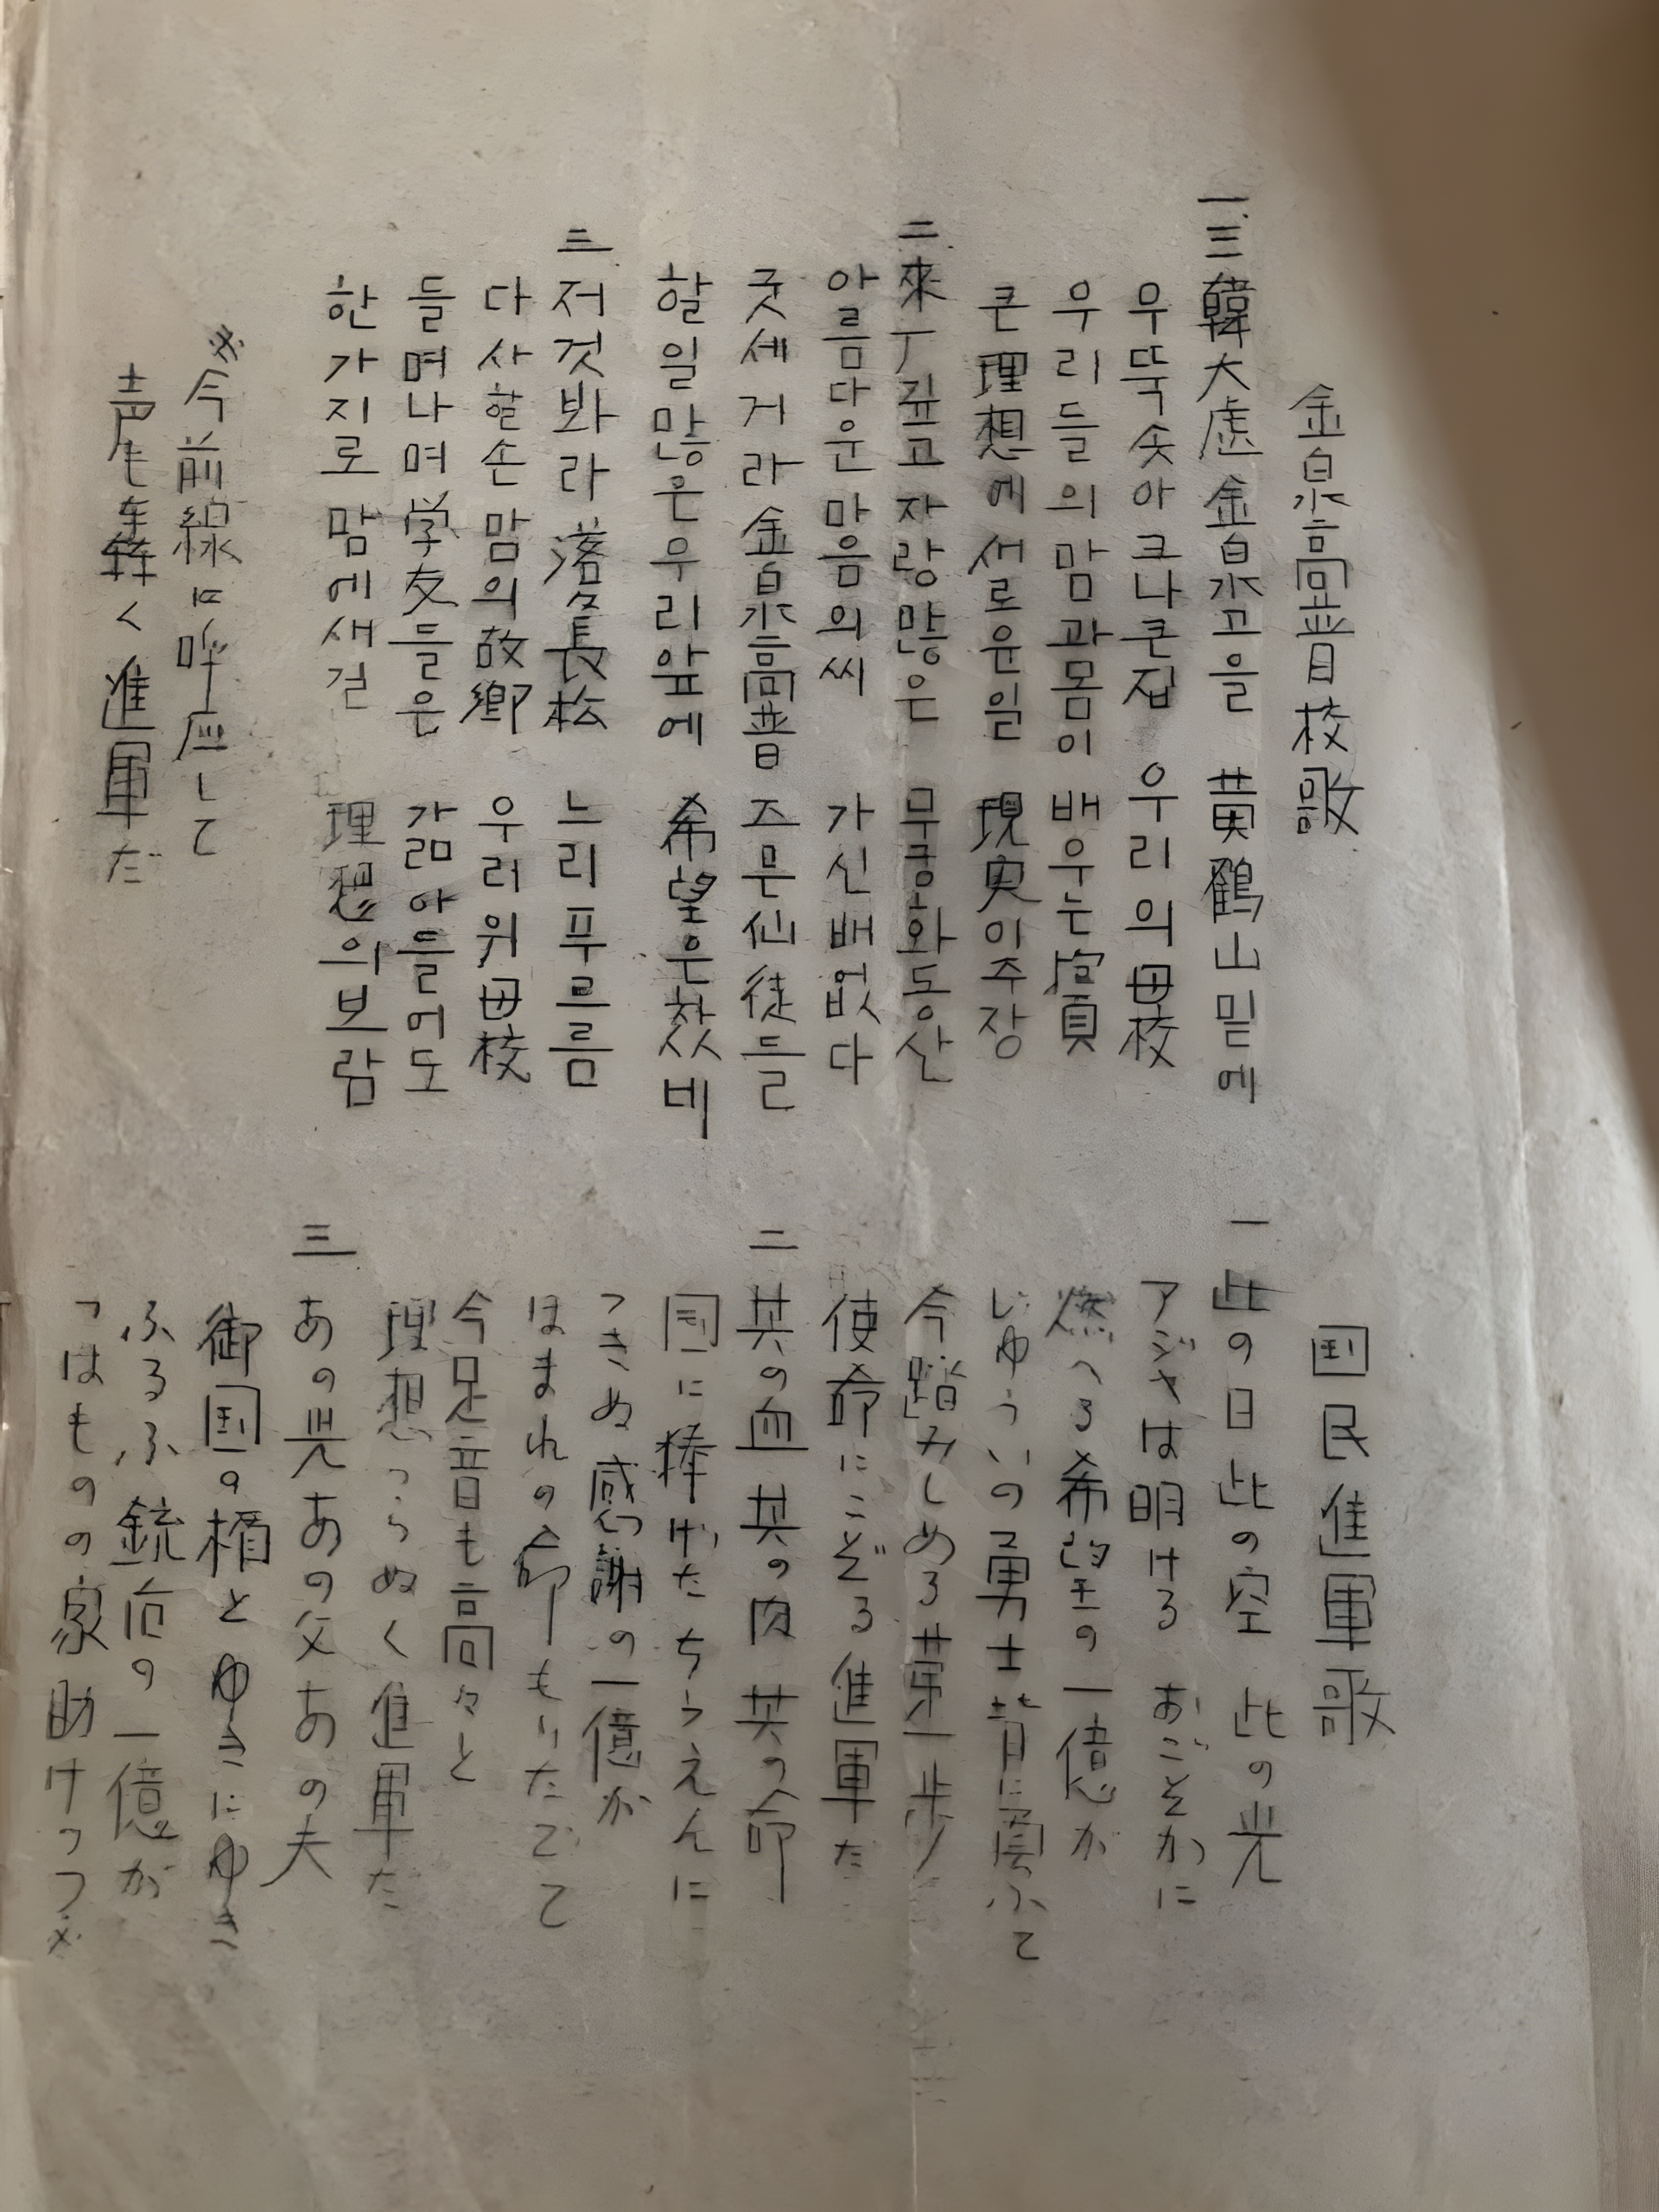 金泉高普校歌
一、三韓大處金泉고을 黄鶴山밑에
우뚝솟아크나큰집 우리의母校
우리들의맘과몸이 배우는實
큰理想에새로운일 現実이주장
二、來丁깊고자랑많은 무궁화동산
아름다운마음의씨 가신배없다
굿세거라金泉高普 주문仙徒들
할일많은우리앞에 希望은찼네
三 저것봐라落落長松 느리푸르름
다사할손맘의故郷 우러위母校
들며나며学友들은 갊아들어도
한가지로맘에새길 理想의보람
※今前線に呼応して
声も轟く進軍だ
国民進軍歌
一 此の日此の空 此の光
アジヤは明ける おごそかに
燃へる希望の一億が
じゆういの勇士背に負ふて
今踏みしめる第一歩
使命にこぞる進軍だ
二 其の血其の肉 其の命
国に捧げたちうえんに
つきぬ感謝の一億が
ほまれの命もりたてて
今足音も高々と
理想つらぬく進軍だ
三 あの児あの父あの夫
御国の楯とゆきにゆき
ふるふ銃后の一億が
つはものの家助けつつ※